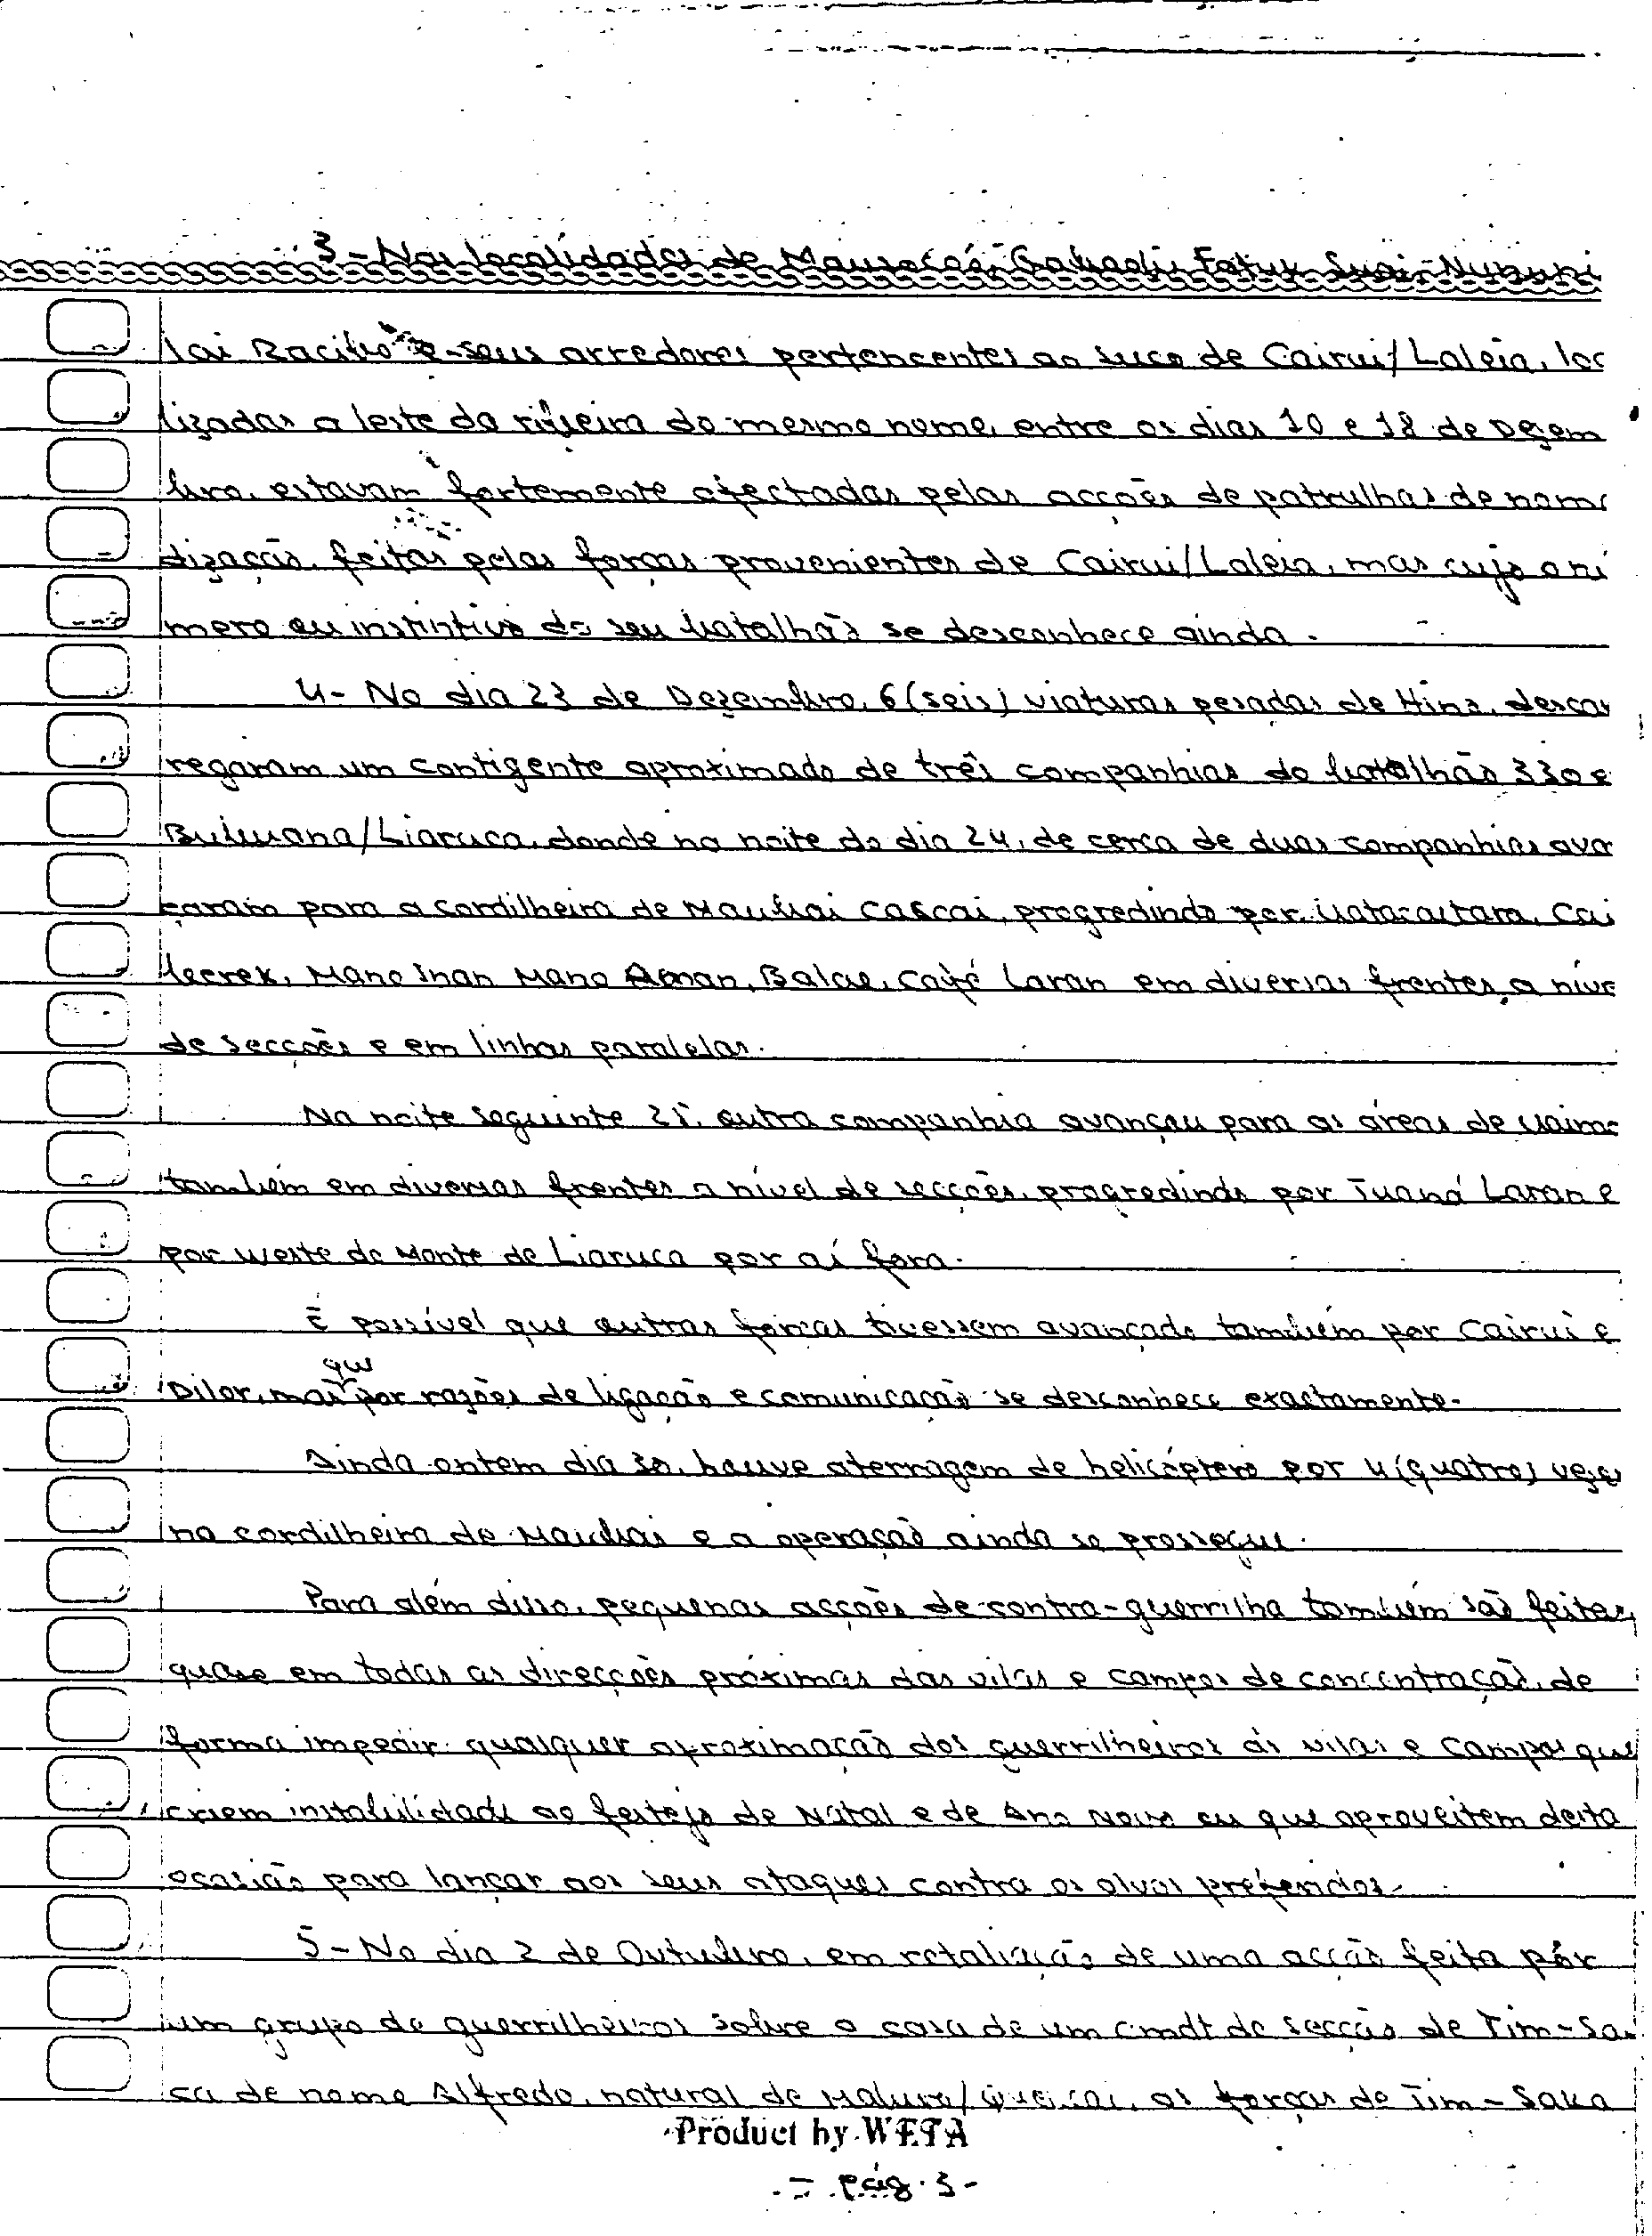 3 - Nas localidades de Mausocái, Fatuk Suai-Nununi
lai Bacilho e seus arredores pertencentes ao suco de Cairui/Laleia, loc
lizadas a leste da ribeira do mesmo nome, entre os dias 10 e 18 de Dezem
bro, estavam fortemente afectadas pelas acções de patrulhas de nom
dização, feitas pelas forças provenientes de Cairui/Laleia, mas cujo o nú
mero ou instintivo do seu batalhão se desconhece ainda.
4- No dia 23 de Dezembro, 6 (seis) viaturas pesadas de Hino, descar
regaram um contigente aproximado de três companhias do batalhão 330 e
Bubuana/Liaruca, donde na noite do dia 24, de cerca de duas companhias ava
çaram para a cordilheira de Maubai Cascai, progredindo por Uata-aitara, Cai
lecrek, Mano Inan Mano Aman, Balae, Café Laran em diversas frentes, a níve
de secções e em linhas paralelas.
Na noite seguinte 25, outra companhia avançou para as áreas de
também em diversas frentes a nível de secções, progredindo por Tuaná Laran e
por weste do Monte de Liaruca por aí fora.
É possível que outras forças tivessem avançado também por Cairui e
que
Dilor, mas por razões de ligação e comunicação se desconhece exactamente.
Ainda ontem dia 30, houve aterragem de helicóptero por 4 (quatro) vezes
na cordilheira de Maubai e a operação ainda se prossegue.
Para além disso, pequenas acções de contra-guerrilha também são feitas,
quase em todas as direcções próximas das vilas e campos de concentração, de
forma impedir qualquer aproximação dos guerrilheiros às vilas e campos que
criem instabilidade ao festejo de Natal e de Ano Novo ou que aproveitem desta
ocasião para lançar aos seus ataques contra os alvos preferidos.
5 - No dia 2 de Outubro, em retaliação de uma acção feita pôr
um grupo de guerrilheiros sobre a casa de um cmdt de secção de Tim-Sa
ca de nome Alfredo, natural de Maluro/Quelicai, as forças de Tim-Saka
Product by WETA
- pág. 3 -